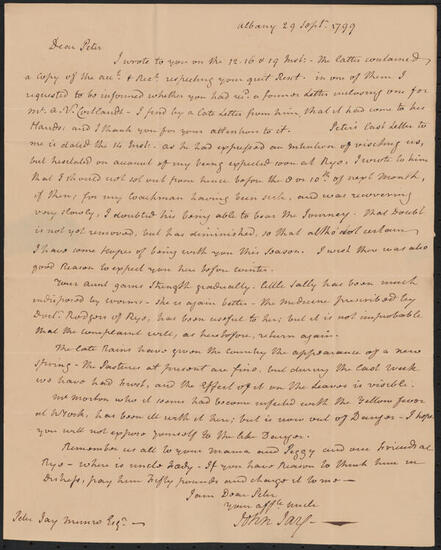 Albany 29 Sept. 1799
Dear Peter
I wrote to you on the 12. 16 & 19 Inst: - the latter contained
a copy of the acct. & Rect. respecting your quit Rent. in one of them I
requested to be informed whether you had recd. a former Letter inclosing one for
Mr. A. V. Cortlandt - I find by a late Letter from him, that it had come to his
Hands: and I thank you for your attention to it. Peter's last Letter to
me is dated the 14 Inst: as he had expressed an Intention of visiting us,
but hesitated on account of my being expected soon at Rye, I wrote to him
that I should not set out from hence before the 8 or 10th. of next Month,
if then; for my Coachman having been sick, and was recovering
very slowly, I doubted his being able to bear the Journey. That Doubt
is not yet removed, but has diminished, so that altho' not certain
I have some Hopes of being with you this Season. I wish there was also
good Reason to expect you here before winter.
Your aunt gains Strength gradually. little Sally has been much
indisposed by worms - she is again better - the Medicine prescribed by
Doctr. Rodgers of Rye, has been useful to her; but it is not improbable
that the complaint will, as heretofore, return again.
The late Rains have given the Country the appearance of a new
Spring - the Pastures at present are fine, but during the last week
we have had Frost, and the Effect of it on the Leaves is visible.
Mr Morton who it seems had become infected with the Yellow fever
at NYork, has been ill with it here; but is now out of Danger - I hope
you will not expose yourself to the like Danger.
Remember us all to your Mama and Peggy and our Friends at
Rye - where is uncle Fady - If you have Reason to think him in
Distress, pay him fifty pounds and charge it to me -
I am Dear Peter
Your affte. uncle
John Jay
Peter Jay Munro Esqr. -